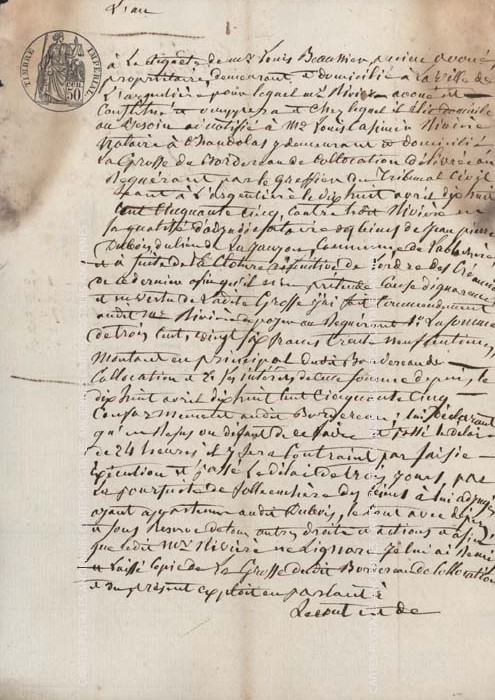 L'an
TIMBRE IMPÉRIAL
50
à la Requête de Mr Louis Beaussier, ancien avoué,
propriétaire, demeurant et domicilié à la ville de
L'argentière pour lequel Mr Rivière avoué est
constitué et chez lequel il élit domicile
au Besoin ai notifié à Mr Louis Casimir Rivière
Notaire à Chandolas y demeurant et domicilié
La Grosse du Bordereau de Collocation délivrée au
Requérant par le Greffier du Tribunal Civil
séant à L'argentière le dix huit avril dix huit
Cent Cinquante Cinq, Contre ledit Rivière en
sa qualité d'adjudicataire des biens de Jean pierre
Dubois, du lieu de Commune de
et à suite de la Clôture définitive de l'ordre des Créanciers
de ce dernier afin qu'il n'en prétende Cause d'ignorance
et en Vertu de ladite Grosse j'ai fait Commandement
audit Mr Rivière de payer au Requérant 1° La somme
de trois Cent, vingt six francs trente neuf centimes,
montant en principal dudit Bordereau de
Collocation et 2° les intérêts de cette somme depuis le
dix huit avril dix huit Cent Cinquante Cinq
Conformément audit Bordereau; lui déclarant
qu'en Refus ou défaut de ce faire et passé le délai
de 24 heures il y sera Contraint par saisie-
Exécution et passé le délai de trois jours, par
La poursuite de folle enchère des biens à lui adjugés
ayant appartenu audit Dubois, le tout avec dépens
et sous Reserve de tous autres droits et actions et afin
que ledit Mr Rivière ne L'ignore je lui ai Remis
et Laissé Copie de La Grosse dudit Bordereau de Collocation
et du présent exploit en parlant à
Le Cout est de